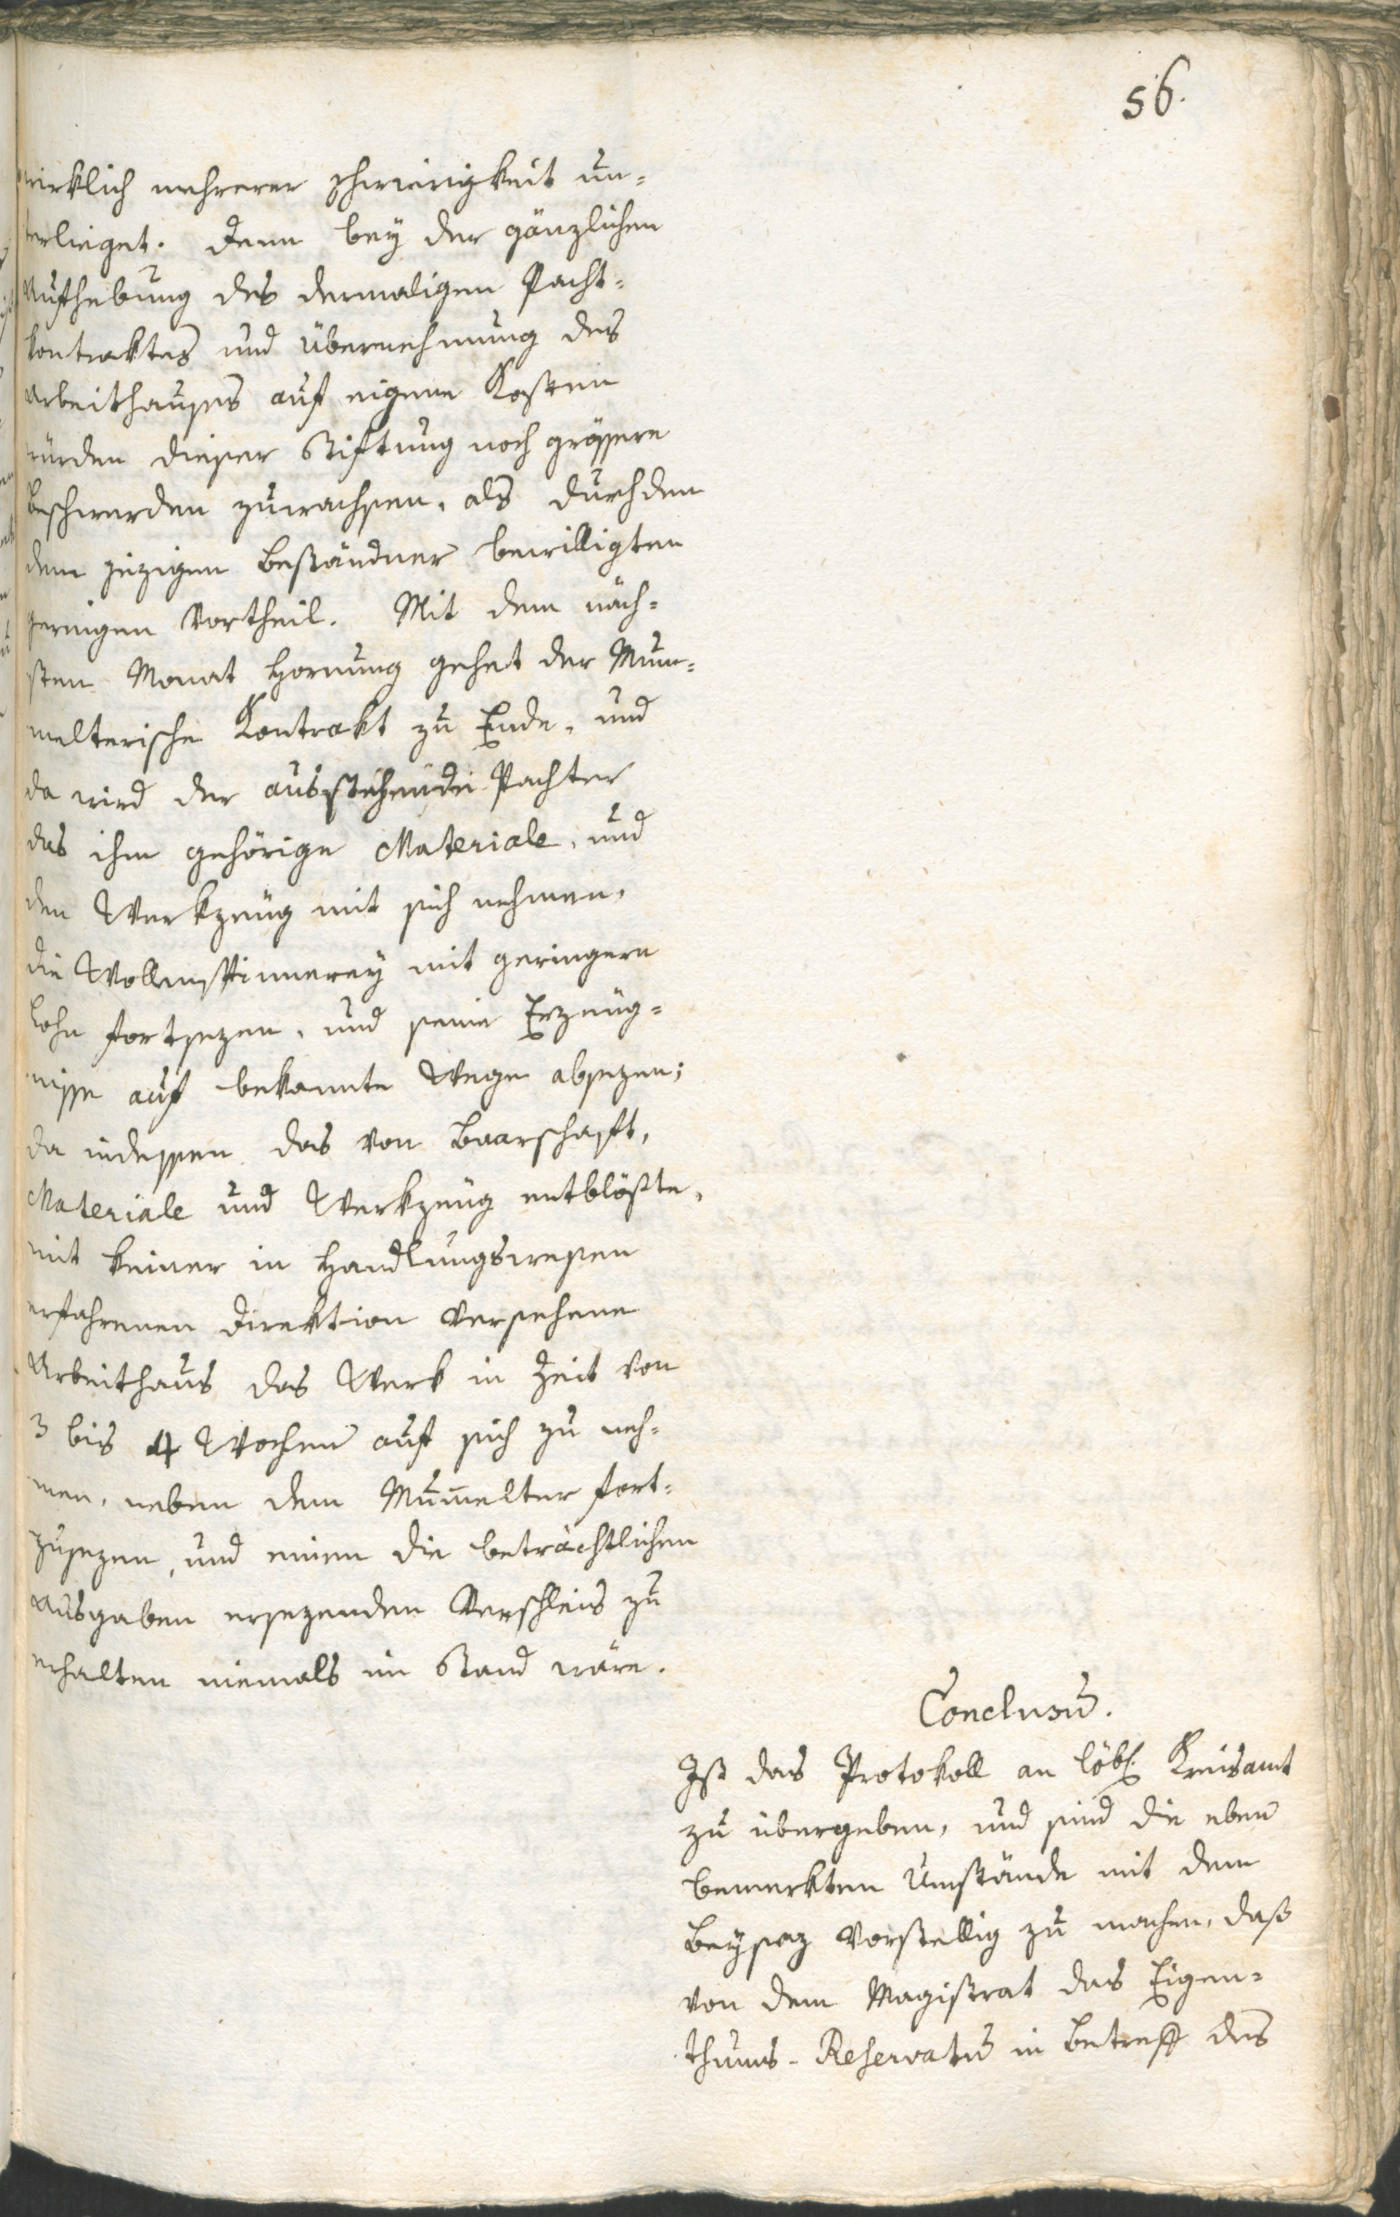 56.
wirklich mehrerer Schwierigkeit un-
terlieget. Denn bey der gänzlichen
Aufhebung des dermaligen Pacht-
kontraktes und Übernehmung des
Arbeithauses auf eigene Kosten
würden dieser Stiftung noch grössere
Beschwerden zuwachsen, als durch den
dem jezigen Beständner bewilligten
geringen Vortheil. Mit dem näch-
sten Monat Hornung gehet der Mum-
melterische Kontrakt zu Ende, und
da wird der ausstehende Pachter
das ihm gehörige Materiale, und
den Werkzeug mit sich nehmen,
die Wollenspinnerey mit geringern
Lohn fortsezen, und seine Erzeug-
nisse auf bekannte Wege absezen;
da indessen das von Baarschaft,
Materiale und Werkzeug entblößte,
mit keiner in Handlungswesen
erfahrenen Direktion versehene
Arbeithaus das Werk in Zeit von
3 bis 4 Wochen auf sich zu neh-
men, neben dem Mum̄elter fort-
zusezen, und einen die beträchtlichen
Ausgaben ersezenden Verschleis zu
erhalten niemals im Stand wäre.
Conclusum.
Ist das Protokoll an löbl. Kreisamt
zu übergeben, und sind die eben
bemerkten Umstände mit dem
Beysaz vorstellig zu machen, daß
von dem Magistrat das Eigen-
thums-Reservatum in Betreff des